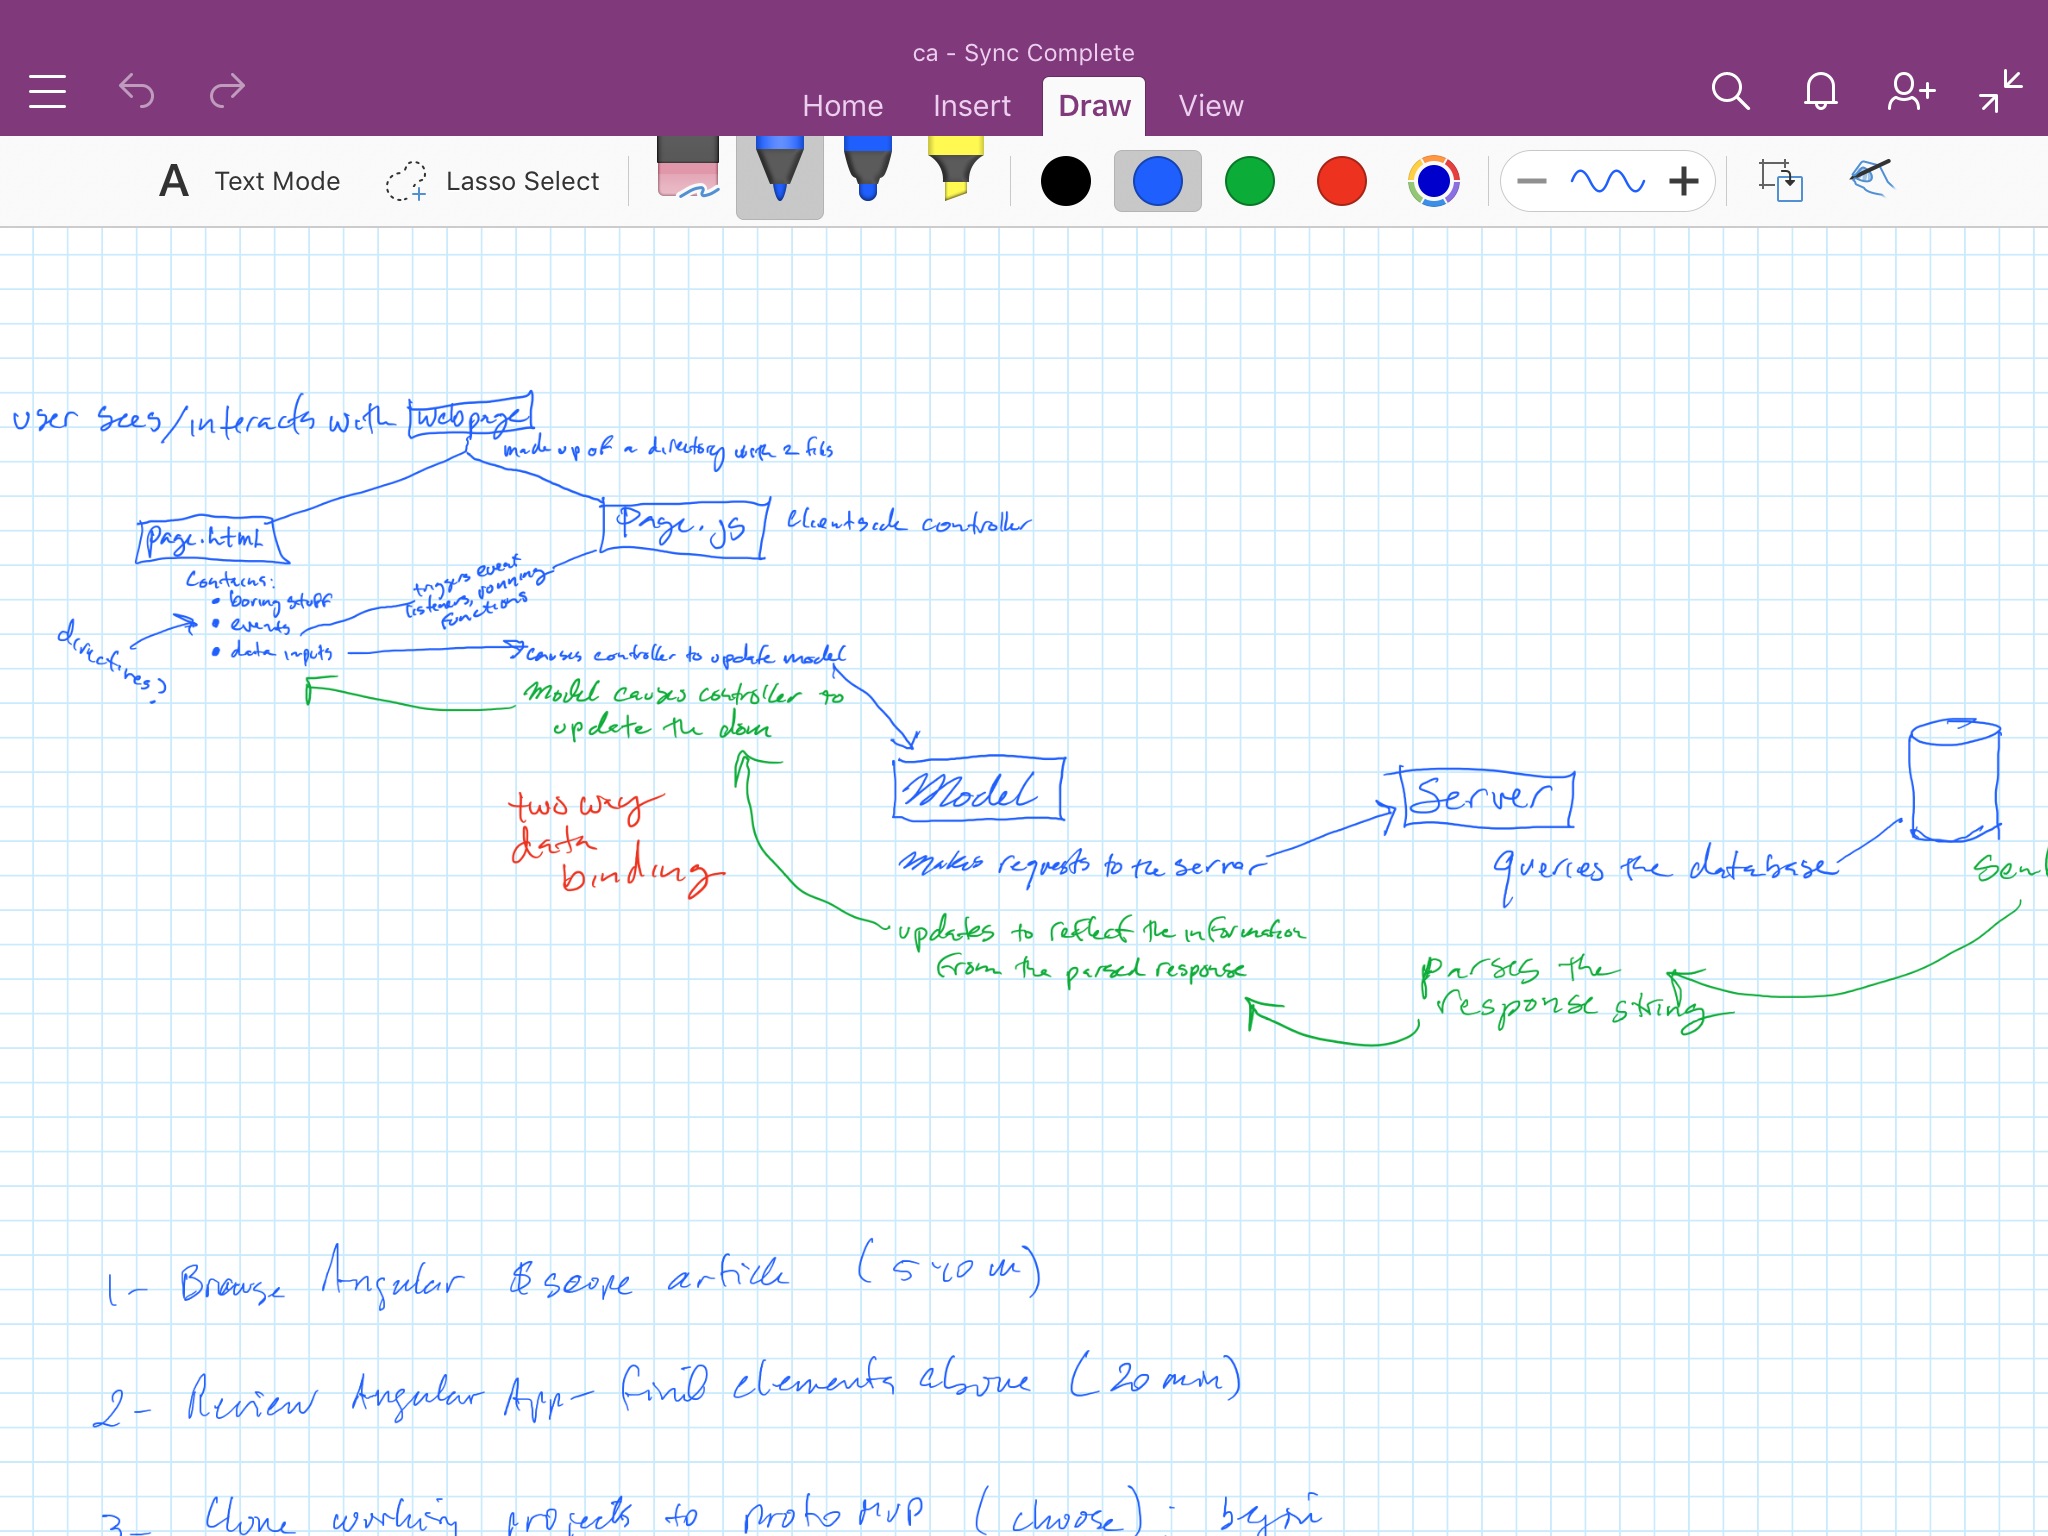 ca - Sync Complete
Home Insert Draw View
A Text Mode Lasso Select
user sees/interacts with webpage
made up of a directory with 2 files
page.html
Page.js
Clientside controller
Contains:
• boring stuff
• events
• data inputs
directives
triggers event
listeners, running
functions
causes controller to update model
Model causes controller to
update the dom
two way
data
binding
Model
makes requests to the server
updates to reflect the information
from the parsed response
Server
queries the database
parses the
response string
1- Browse Angular $scope article (5-10 m)
2- Review Angular App- find elements above (20 min)
3- Clone working projects to proto MVP (choose): begin